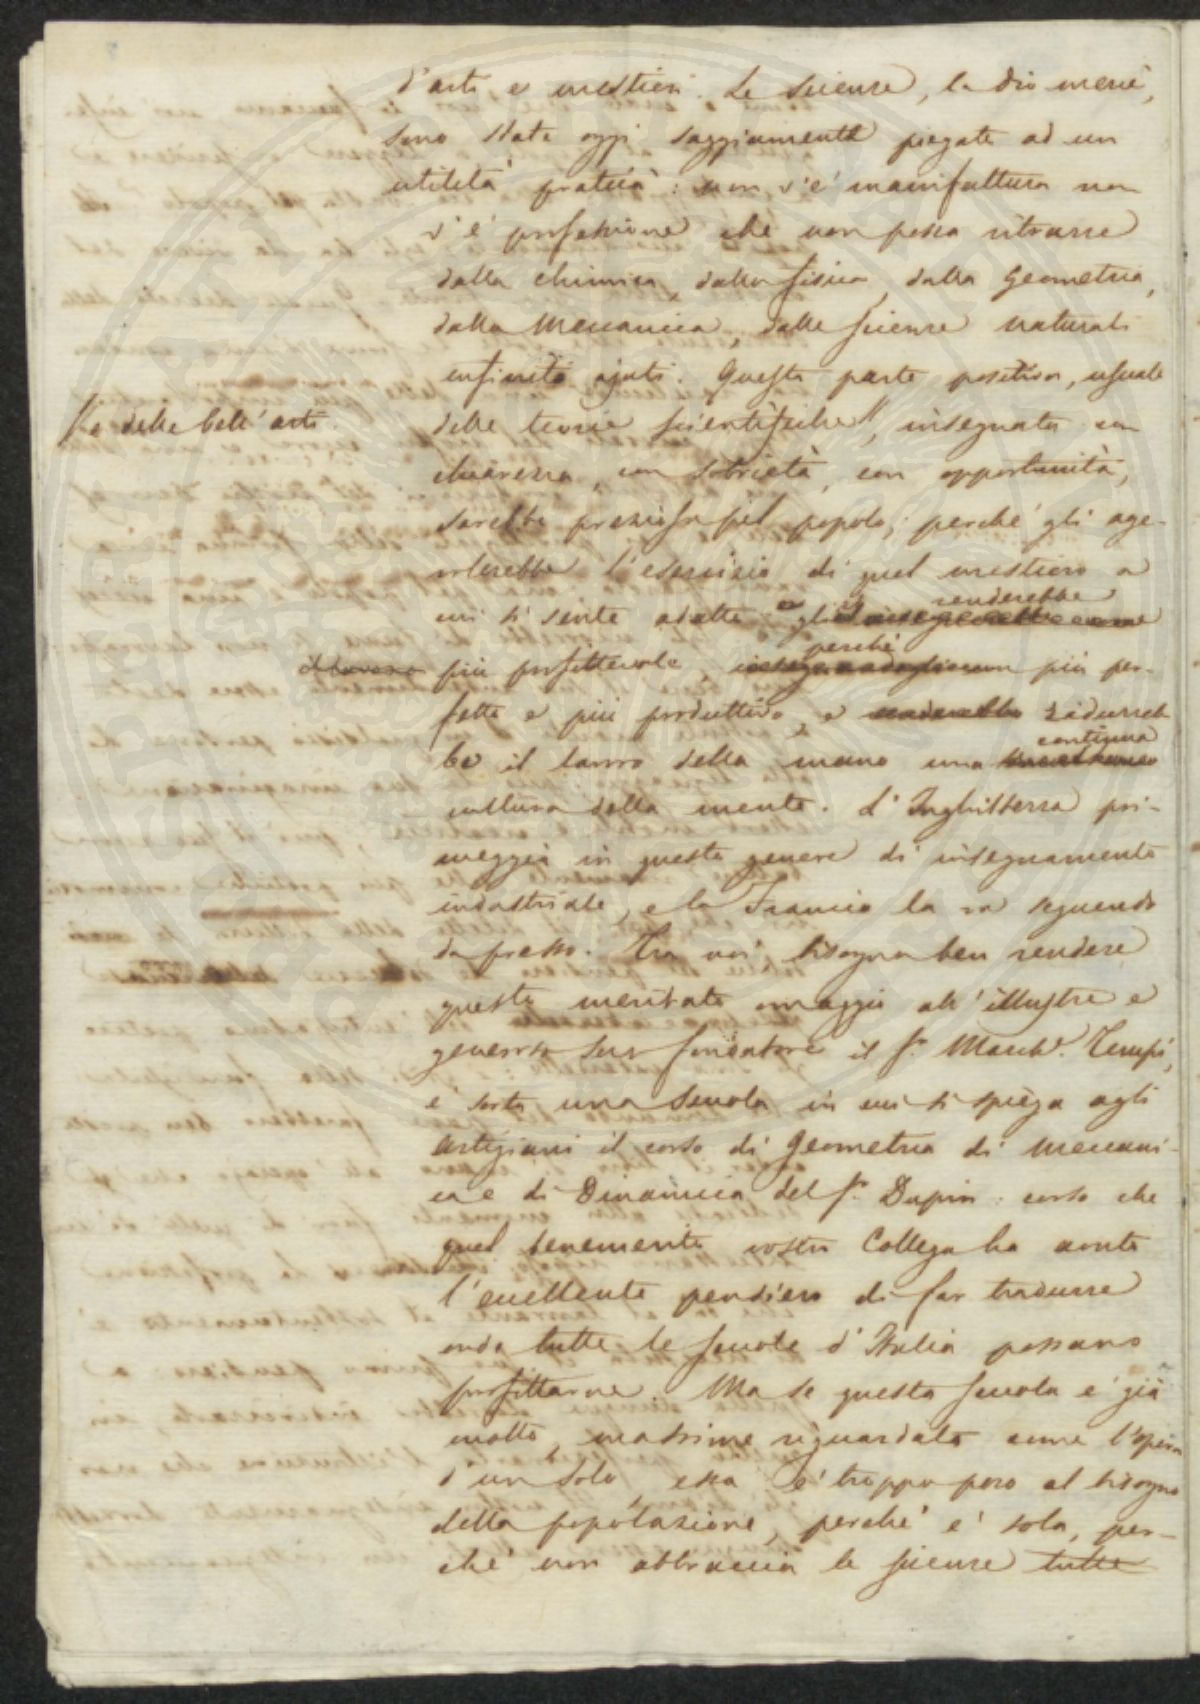 d'arti e mestieri. Le scienze, la Dio mercè,
sono state oggi saggiamente piegate ad un
utilità pratica: non v'è manifattura non
v'è professione che non possa ritrarre
dalla chimica, dalla fisica, dalla Geometria,
dalla Meccanica, dalle scienze naturali
infiniti ajuti. Questa parte positiva, usuale
delle teorie scientifiche //, insegnata con
// e delle bell'arti.
chiarezza, con sobrietà, con opportunità,
sarebbe preziosa pel popolo; perché gli age-
volerebbe l'esercizio di quel mestiero a
cui si sente adatto e glielo renderebbe
più profittevole, perchè più per-
fetto e più produttivo, e ridurreb-
be il lavoro della mano una continua
cultura della mente. L'Inghilterra pri-
meggia in questo genere di insegnamento
industriale, e la Francia la va seguendo
da presso. Tra noi bisogna ben rendere
questo meritato omaggio all'illustre e
generoso suo fondatore il Sr. March. Tempi,
è sorta una scuola in cui si spiega agli
artigiani il corso di Geometria di Meccani-
ca e di Dinamica del Sr. Dupin: corso che
quel benemerito nostro Collega ha avuto
l'eccellente pensiero di far tradurre
onde tutte le scuole d'Italia possano
profittarne. Ma se questa scuola è già
molto, massime riguardata come l'opera
d'un solo, essa è troppo poco al bisogno
della popolazione, perché è sola, per-
ché non abbraccia le scienze tutte